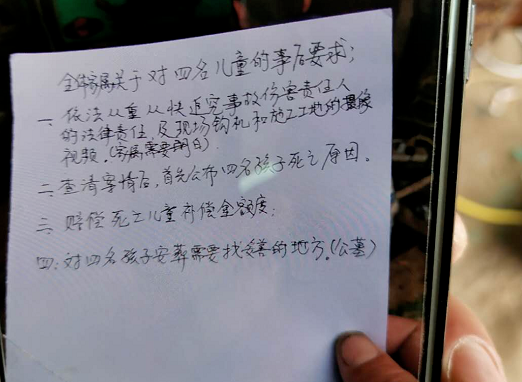 全体家属关于对四名儿童的事后要求;
一、依法从重从快追究事故伤害责任人
的法律责任,及现场钩机和施工工地的摄像
视频。(家属需要明白)
二、查清案情后,首先公布四名孩子死亡原因。
三、赔偿死亡儿童补偿金额度;
四:对四名孩子安葬需要找妥善的地方。(公墓)